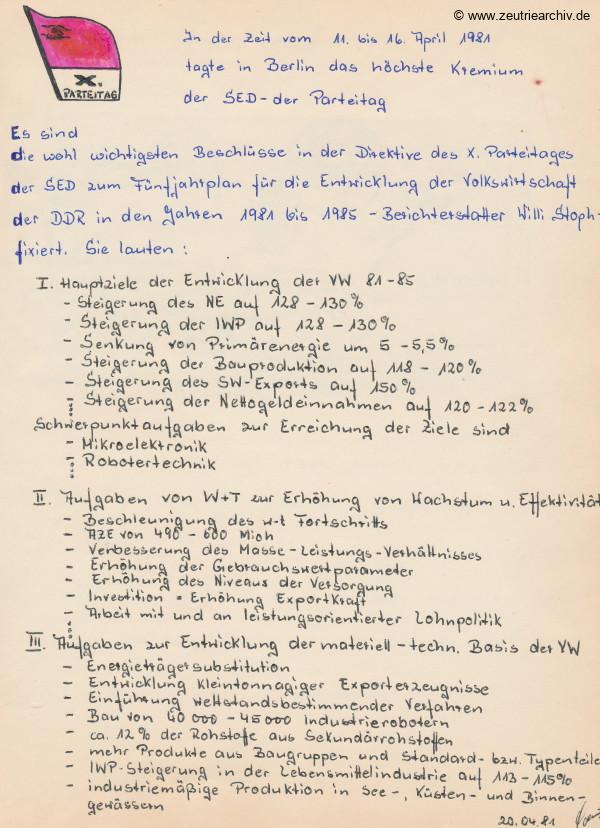 © www.zeutriearchiv.de
X.
PARTEITAG
In der Zeit vom 11. bis 16. April 1981
tagte in Berlin das höchste Kremium
der SED-der Parteitag
Es sind
die wohl wichtigsten Beschlüsse in der Direktive des X. Parteitages
der SED zum Fünfjahrplan für die Entwicklung der Volkswirtschaft
der DDR in den Jahren 1981 bis 1985 - Berichterstatter Willi Stoph-
fixiert. Sie lauten:
I. Hauptziele der Entwicklung der VW 81-85
- Steigerung des NE auf 128 - 130%
- Steigerung der IWP auf 128 - 130%
- Senkung von Primärenergie um 5 - 5,5%
- Steigerung der Bauproduktion auf 118 - 120%
- Steigerung des SW-Exports auf 150%
- Steigerung der Nettogeldeinnahmen auf 120 - 122%
Schwerpunktaufgaben zur Erreichung der Ziele sind
- Mikroelektronik
- Robotertechnik
II. Aufgaben von W+T zur Erhöhung von Wachstum u. Effektivität
- Beschleunigung des w-t Fortschritts
- AZE von 490 - 600 Mioh
- Verbesserung des Masse-Leistungs-Verhältnisses
- Erhöhung der Gebrauchswertparameter
- Erhöhung des Niveaus der Versorgung
- Investition = Erhöhung Exportkraft
- Arbeit mit und an leistungsorientierter Lohnpolitik
III. Aufgaben zur Entwicklung der materiell-techn. Basis der VW
- Energieträgersubstitution
- Entwicklung kleintonnagiger Exporterzeugnisse
- Einführung weltstandsbestimmender Verfahren
- Bau von 40 000 - 45000 Industrierobotern
- ca. 12% der Rohstoffe aus Sekundärrohstoffen
- mehr Produkte aus Baugruppen und Standard- bzw. Typenteile
- IWP-Steigerung in der Lebensmittelindustrie auf 113 - 115%
- industriemäßige Produktion in See-, Küsten- und Binnen-
gewässern
20.04.81